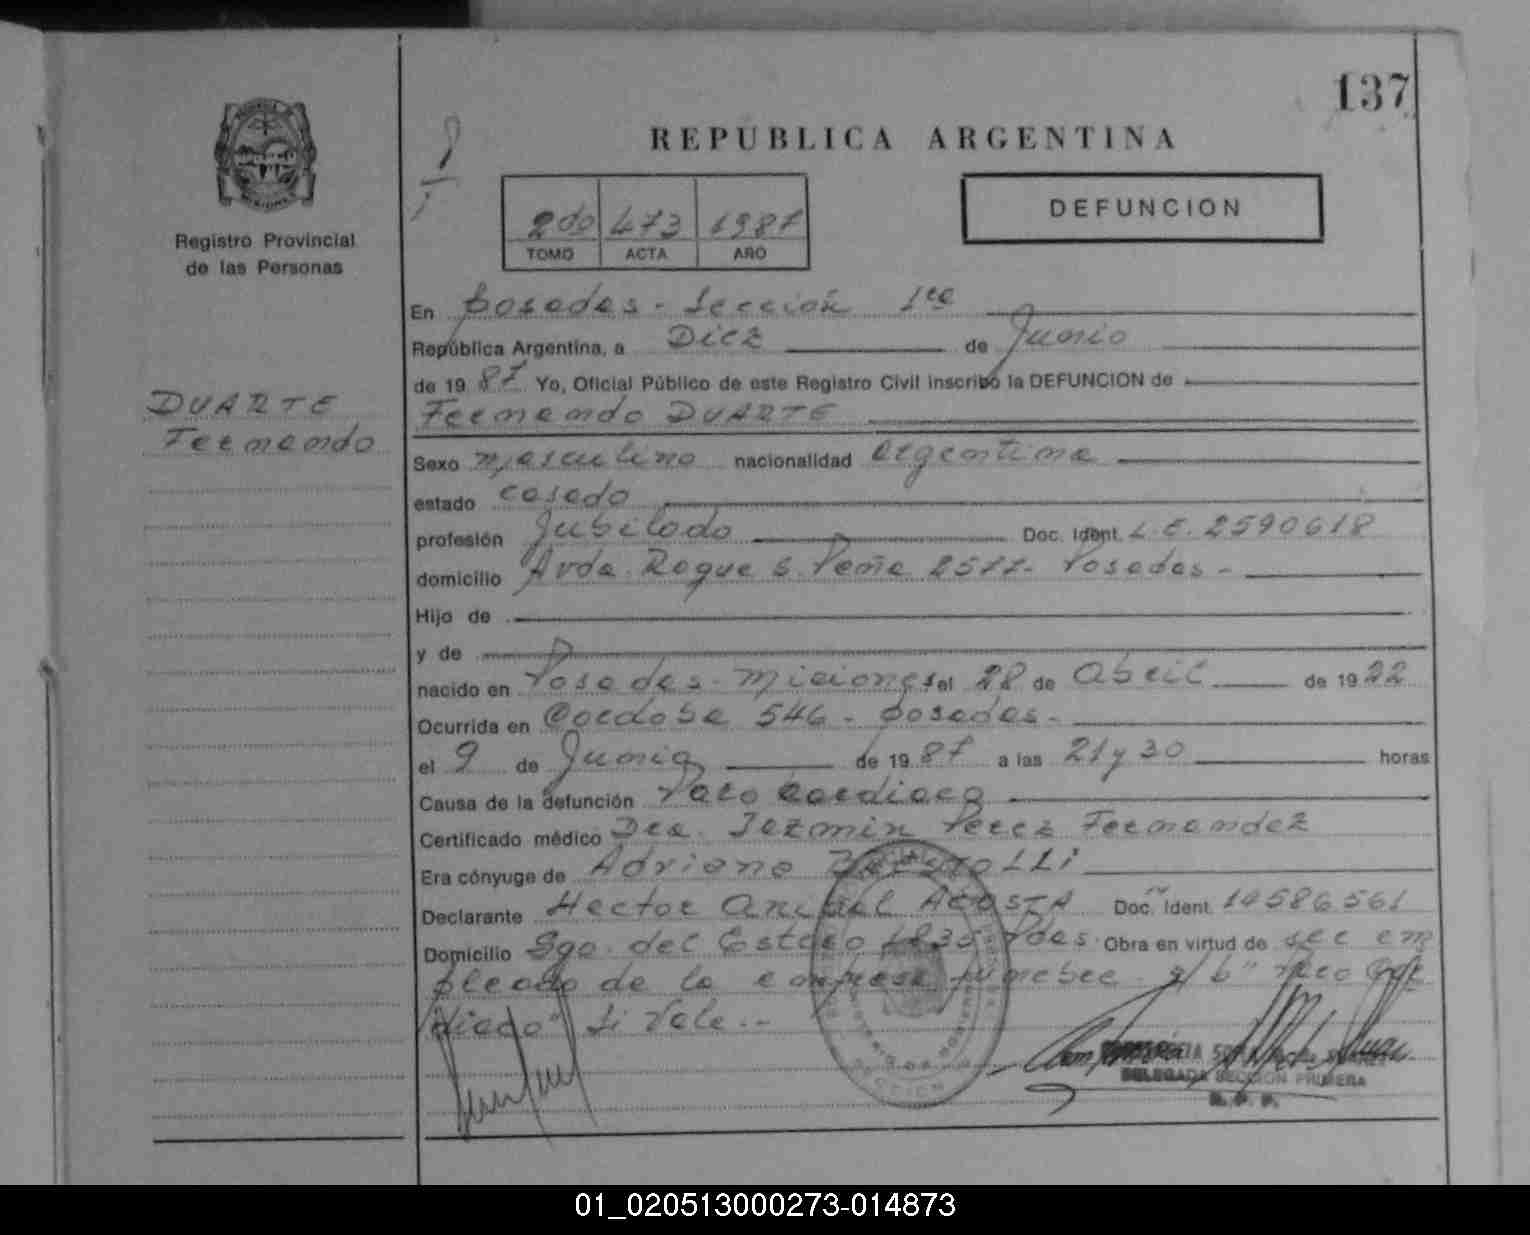 137
REPUBLICA ARGENTINA
DEFUNCION
2do 473 1987
TOMO ACTA AÑO
Registro Provincial
de las Personas
DUARTE
Fernando
En Posadas - Sección 1ra
República Argentina, a Diez de Junio
de 1987 Yo, Oficial Público de este Registro Civil inscribo la DEFUNCION de
Fernando DUARTE
Sexo masculino nacionalidad argentina
estado casado
profesión Jubilado Doc. Ident. L.E. 2590618
domicilio Avda. Roque S. Peña 2577- Posadas-
Hijo de
y de
nacido en Posadas - Misiones el 28 de Abril de 1922
Ocurrida en Cordoba 546 - Posadas-
el 9 de Junio de 1987 a las 21 y 30 horas
Causa de la defunción Paro Cardiaco
Certificado médico Dra. Jazmin Perez Fernandez
Era cónyuge de
Declarante Hector Anibal ACOSTA Doc. Ident. 14586561
Domicilio Sgo. del Estero Pdas. Obra en virtud de ser em
pleado de la empresa funebre "Paro Car
diaco" Si Vale.-
DELEGADA SECCION PRIMERA
R. P. P.
01_020513000273-014873